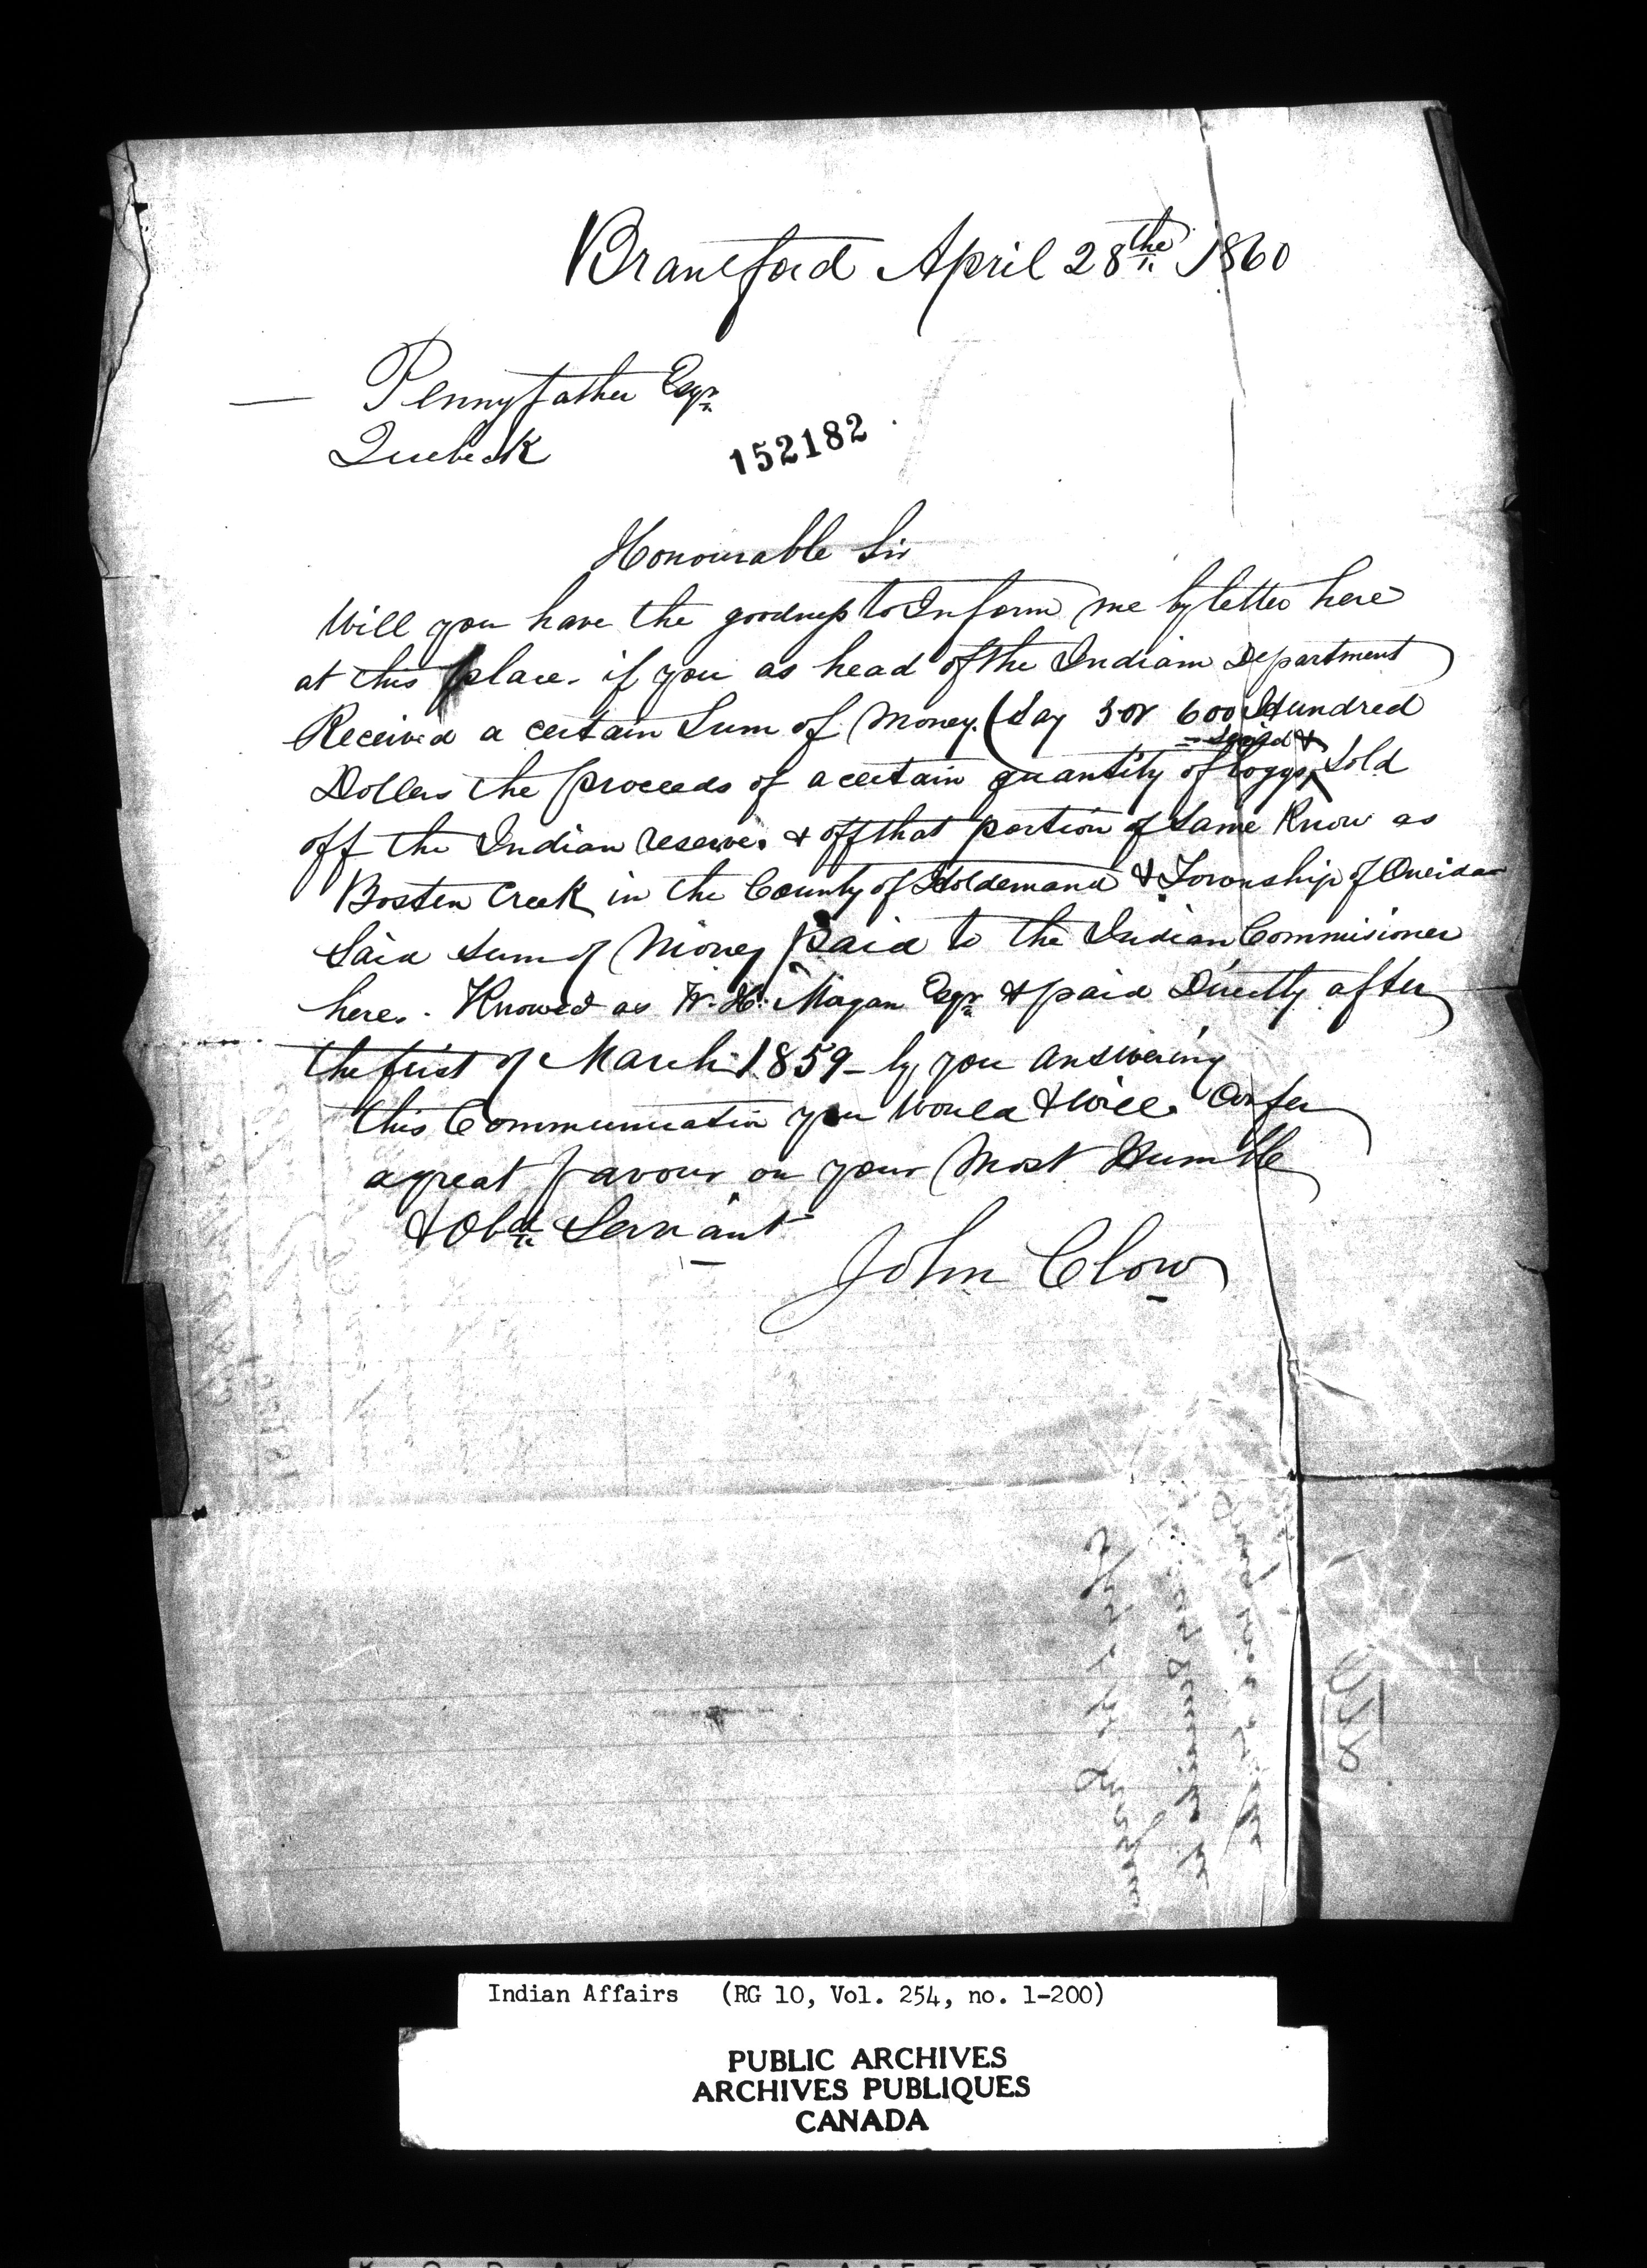 Brantford April 28th 1860
— Pennyfather Esqr
Quebeck
152182
Honourable Sir
Will you have the goodness to Inform me by letter here
at this place. if you as head of the Indian Department
Received a certain Sum of Money. (Say 5 or 600 Hundred
Dollers the proceeds of a certain quantity of loggs Sold
off the Indian reserve. & off that portion of Same Know as
Bosten Creek in the County of Holdemand & Township of Oneida
Said Sum of Money Paid to the Indian Commisioner
here. Knowed as W. H. Magan Esqr & paid Directly after
the first of March 1859 – by you answering
this Communication you Would & Will Confer
a great favour on your Most Humble
& Obdt Servant
John Clow
Indian Affairs (RG 10, Vol. 254, no. 1-200)
PUBLIC ARCHIVES
ARCHIVES PUBLIQUES
CANADA